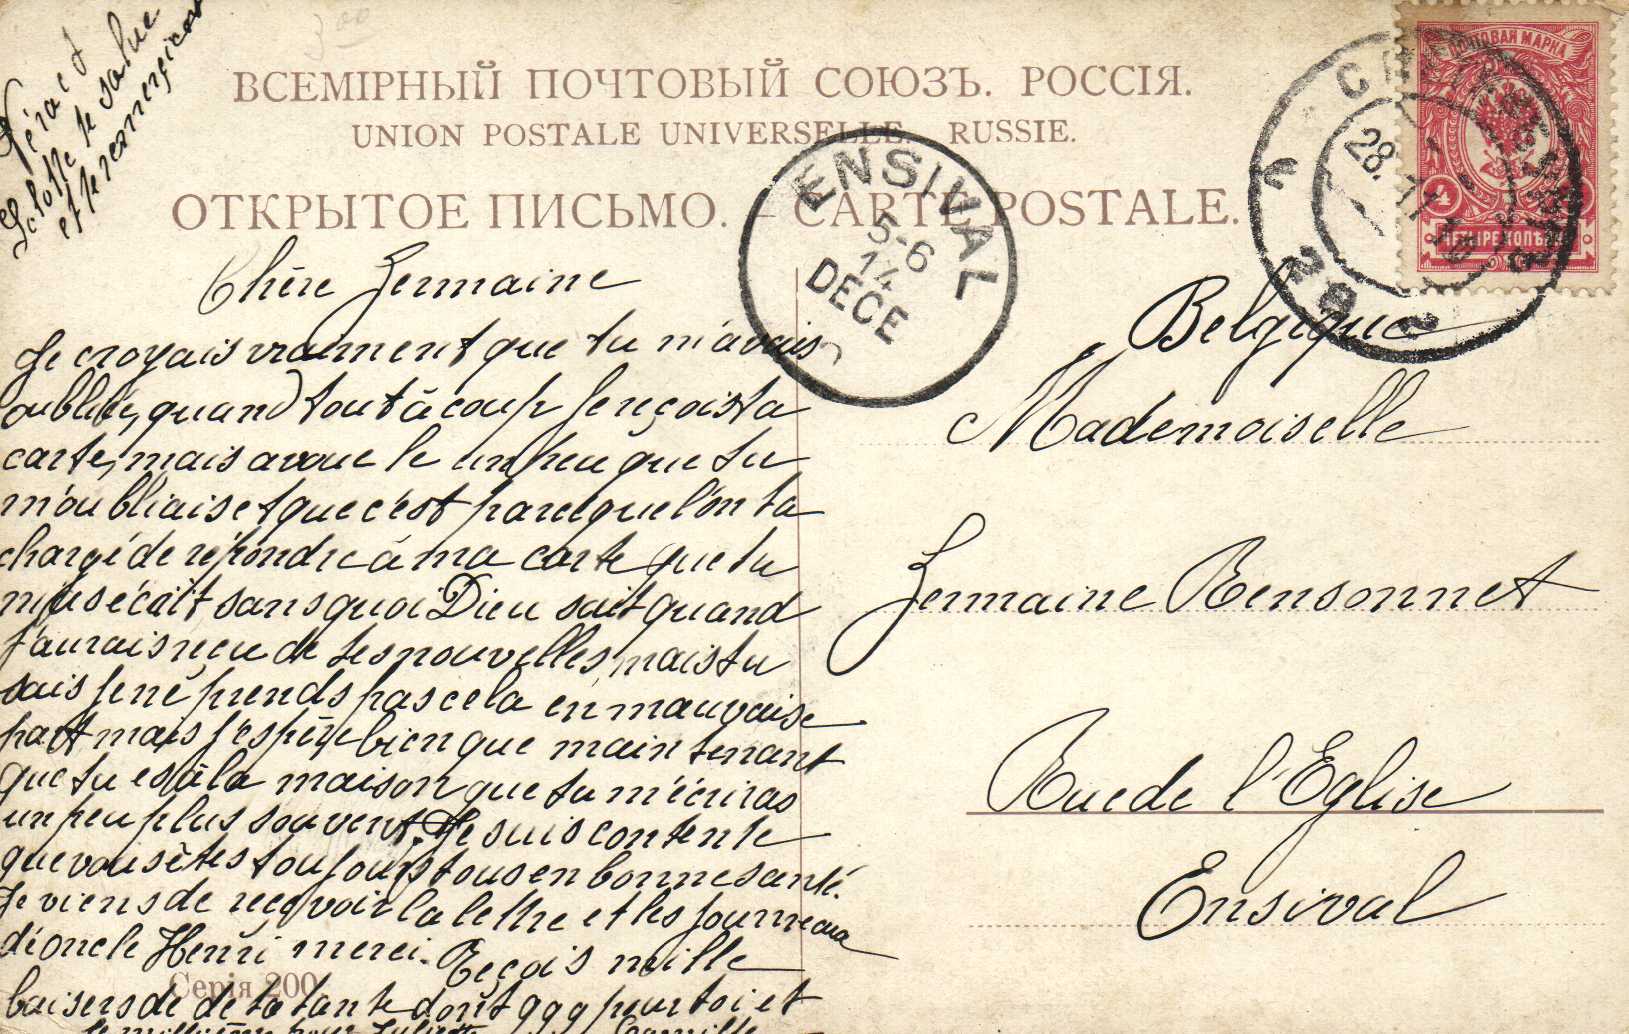 Véra et
te salue
et te remerçie
ВСЕМІРНЫЙ ПОЧТОВЫЙ СОЮЗЪ. РОССІЯ.
UNION POSTALE UNIVERSELLE. RUSSIE.
ОТКРЫТОЕ ПИСЬМО. – CARTE POSTALE.
ПОЧТОВАЯ МАРКА
4 4
ЧЕТЫРЕ КОП
28. 11
ENSIVAL
5-6
14
DECE
Chère Germaine
Je croyais vraiment que tu m'avais
oubliée, quand tout à coup je reçois ta
carte, mais avoue le un peu que tu
m'oubliais et que c'est parce que l'on t'a
chargé de répondre à ma carte que tu
m'as écrit sans quoi Dieu sait quand
j'aurais reçu de tes nouvelles, mais tu
sais je ne prends pas cela en mauvaise
part mais j'espère bien que maintenant
que tu es à la maison que tu m'écriras
un peu plus souvent. Je suis contente
que vous êtes toujours tous en bonne santé.
Je viens de reçevoir la lettre et les journeaux
d'oncle Henri merci. Reçois mille
baisers de de ta tante dont 999 pour toi et
le millième pour Juliette
Серія 200
Belgique
Mademoiselle
Germaine Rensonnet
Rue de l'Eglise
Ensival